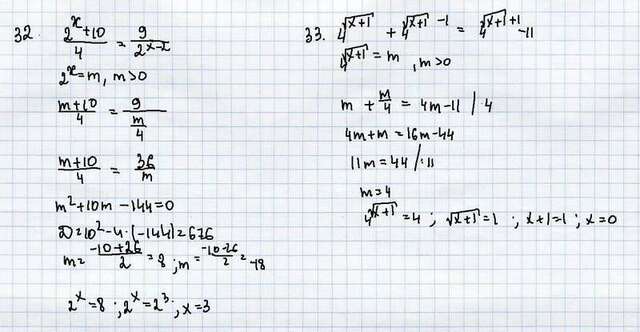 32. (2^x+10)/4 = 9/(2^(x-2))
2^x=m, m>0
(m+10)/4 = 9/(m/4)
(m+10)/4 = 36/m
m²+10m-144=0
D=10²-4·(-144)=676
m=(-10+26)/2=8; m=(-10-26)/2=-18
2^x=8; 2^x=2³; x=3
33. 4^√(x+1) + 4^(√(x+1) -1) = 4^(√(x+1) +1) -11
4^√(x+1) = m, m>0
m + m/4 = 4m-11 /·4
4m+m=16m-44
11m=44 /:11
m=4
4^√(x+1)=4; √(x+1)=1; x+1=1; x=0